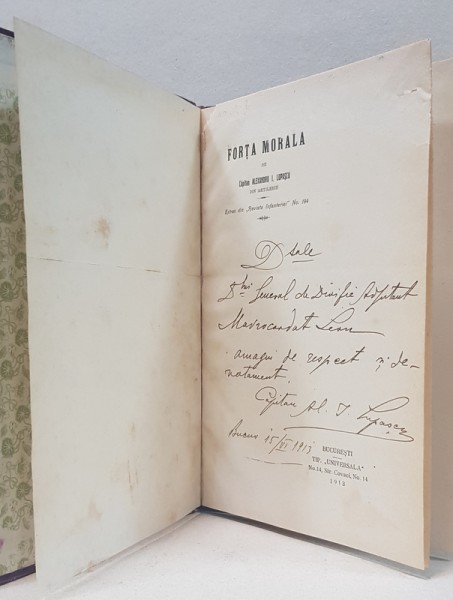 FORȚA MORALA
DE
Capitan ALEXANDRU I. LUPAȘCU
DIN ARTILERIE
Extras din „Revista Infanteriei" No. 194
Dsale
Dlui General de Divizie Adjutant
Mavrocordat Leon
omagiu de respect și de-
votament.
Capitan Al. I. Lupașcu
Bucur 15/VI 1913
BUCUREȘTI
TIP. „UNIVERSALA"
No. 14, Str. Covaci, No. 14
1913